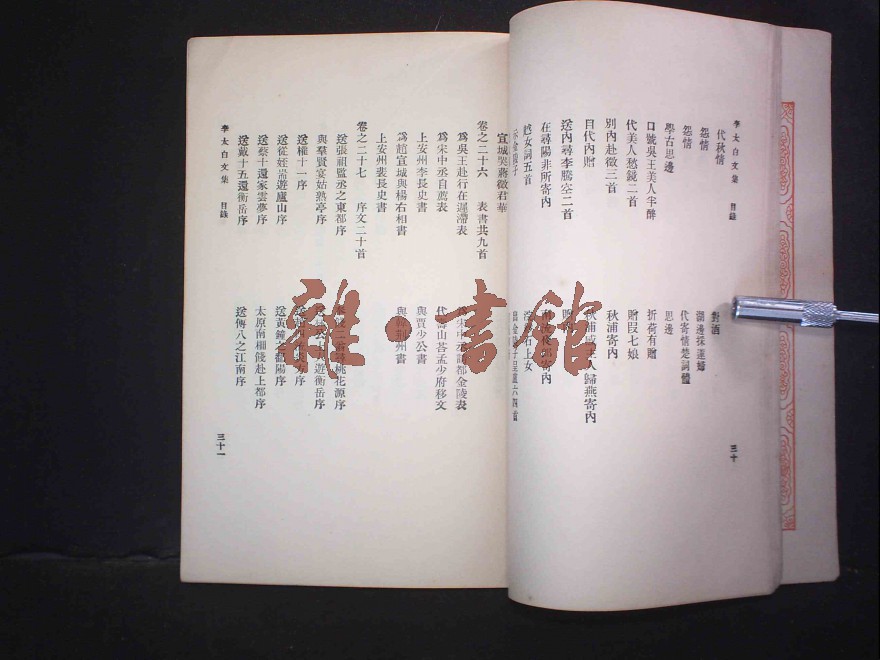 李太白文集 目錄 三十
代秋情 對酒
怨情 湖邊採蓮婦
怨情 代寄情楚詞體
學古思邊 思邊
口號吳王美人半醉 折荷有贈
代美人愁鏡二首 贈段七娘
別內赴徵三首 秋浦寄內
自代內贈 秋浦感主人歸燕寄內
送內尋李騰空二首
在尋陽非所寄內 寄內
越女詞五首 石上女
宣城哭蔣徵君華
卷之二十六 表書共九首
爲吳王赴行在遲滯表 金陵表
爲宋中丞自薦表 代壽山答孟少府移文
上安州李長史書 與賈少公書
爲趙宣城與楊右相書 與韓荊州書
上安州裴長史書
卷之二十七 序文二十首
送張祖監丞之東都序 桃花源序
與羣賢宴姑熟亭序 遊衡岳序
送權十一序 方序
送從姪耑遊廬山序 送黃鐘之鄱陽序
送蔡十還家雲夢序 太原南柵餞赴上都序
送戴十五還衡岳序 送傅八之江南序
李太白文集 目錄 三十一
雜·書館